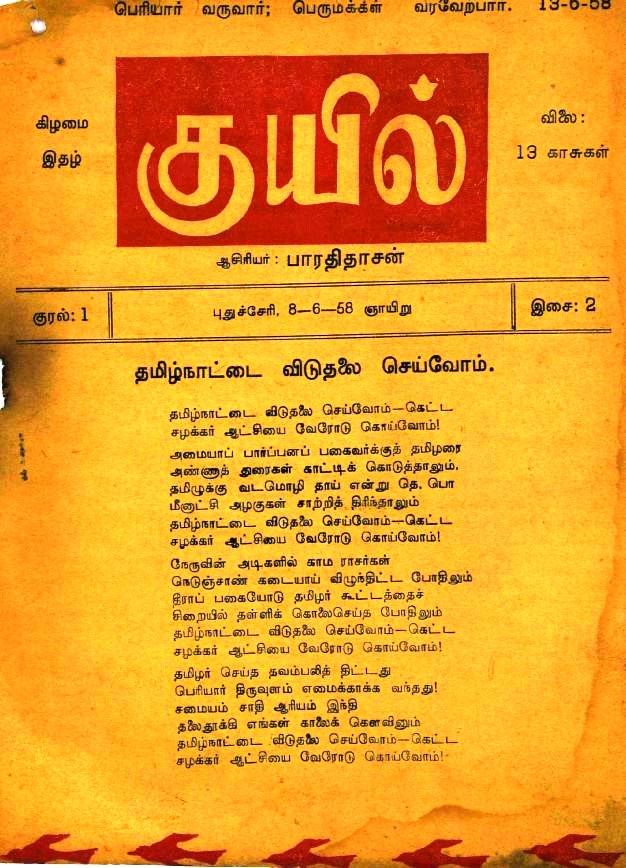 பெரியார் வருவார்; பெருமக்கள் வரவேற்பார். 13-6-58
கிழமை
இதழ்
குயில்
விலை:
13 காசுகள்
ஆசிரியர்: பாரதிதாசன்
குரல்: 1
புதுச்சேரி, 8-6-58 ஞாயிறு
இசை: 2
தமிழ்நாட்டை விடுதலை செய்வோம்.
தமிழ்நாட்டை விடுதலை செய்வோம்—கெட்ட
சழக்கர் ஆட்சியை வேரோடு கொய்வோம்!
அமையாப் பார்ப்பனப் பகைவர்க்குத் தமிழரை
அண்ணாத் துரைகள் காட்டிக் கொடுத்தாலும்,
தமிழுக்கு வடமொழி தாய் என்று தெ. பொ
மீனாட்சி அழகுகள் சாற்றித் திரிந்தாலும்
தமிழ்நாட்டை விடுதலை செய்வோம்—கெட்ட
சழக்கர் ஆட்சியை வேரோடு கொய்வோம்!
நேருவின் அடிகளில் காம ராசர்கள்
நெடுஞ்சாண் கடையாய் விழுந்திட்ட போதிலும்
தீராப் பகையோடு தமிழர் கூட்டத்தைச்
சிறையில் தள்ளிக் கொலைசெய்த போதிலும்
தமிழ்நாட்டை விடுதலை செய்வோம்—கெட்ட
சழக்கர் ஆட்சியை வேரோடு கொய்வோம்!
தமிழர் செய்த தவம்பலித் திட்டது
பெரியார் திருவுளம் எமைக்காக்க வந்தது!
சமையம் சாதி ஆரியம் இந்தி
தலைதூக்கி எங்கள் காலைக் கௌவினும்
தமிழ்நாட்டை விடுதலை செய்வோம்—கெட்ட
சழக்கர் ஆட்சியை வேரோடு கொய்வோம்!